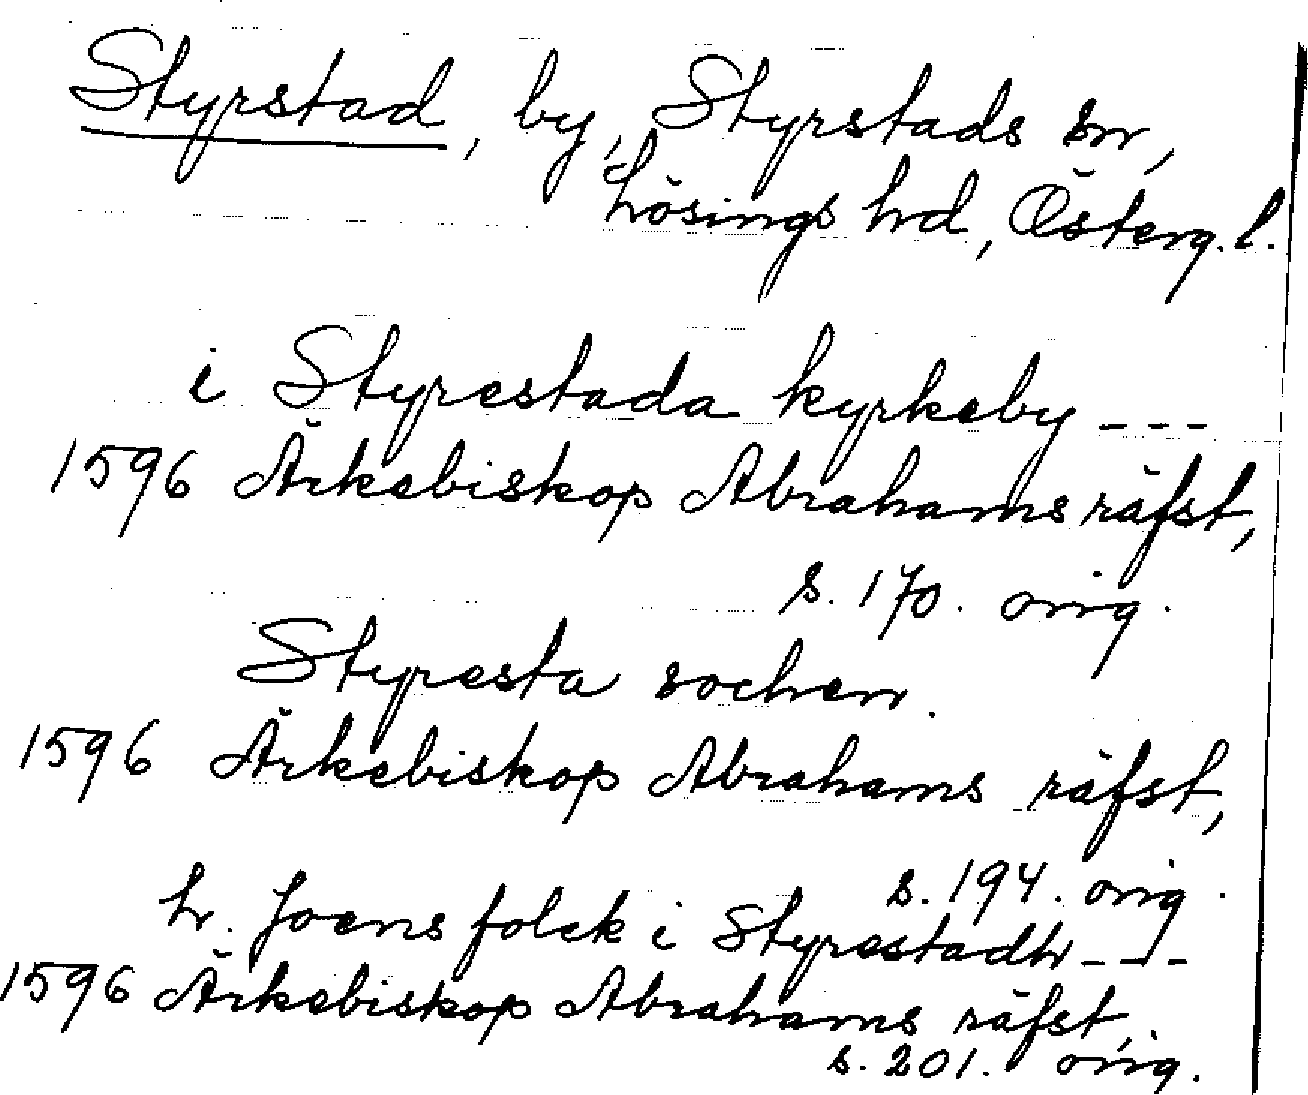 Styrstad, by, Styrstads sn,
Lösings hd, Österg. l.
i Styrestada kyrkeby ---
1596 Ärkebiskop Abrahams räfst,
s. 170. orig.
Styresta sochen.
1596 Ärkebiskop Abrahams räfst,
s. 194. orig.
h. Joens folck i Styrestadh ---
1596 Ärkebiskop Abrahams räfst,
s. 201. orig.